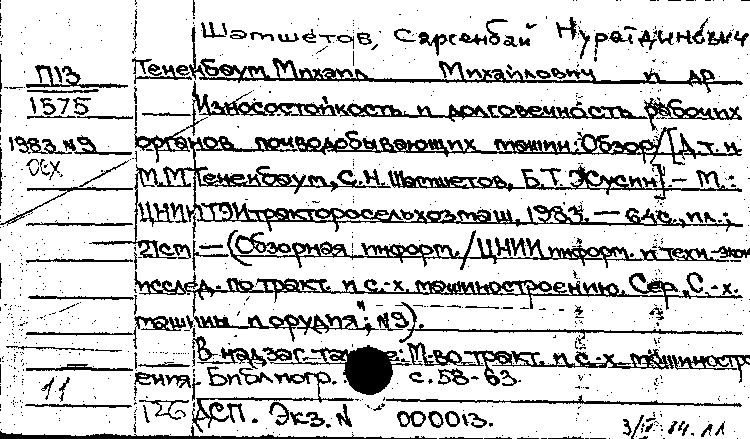 Шатшетов, Сарсенбай Нурадинович
П13 Тененбаум Михаил Михайлович и др
1575 Износостойкость и долговечность рабочих
1983 №9 органов почводобывающих машин: Обзор/[Д.т.н
М.М.Тененбаум, С.Н.Шатшетов, Б.Т.Жусин]. – М.:
ЦНИИТЭИтракторосельхозмаш, 1983. – 64с., ил.;
21см. – (Обзорная информ./ЦНИИ информ. и техн.-экон
исслед. по тракт. и с.-х. машиностроению. Сер. „С.-х.
машины и орудия"; №9).
В надзаг. также: М-во тракт. и с.-х. машиностро
11 ения. Библиогр. с. 58-63.
126 ДСП. Экз. N 000013.